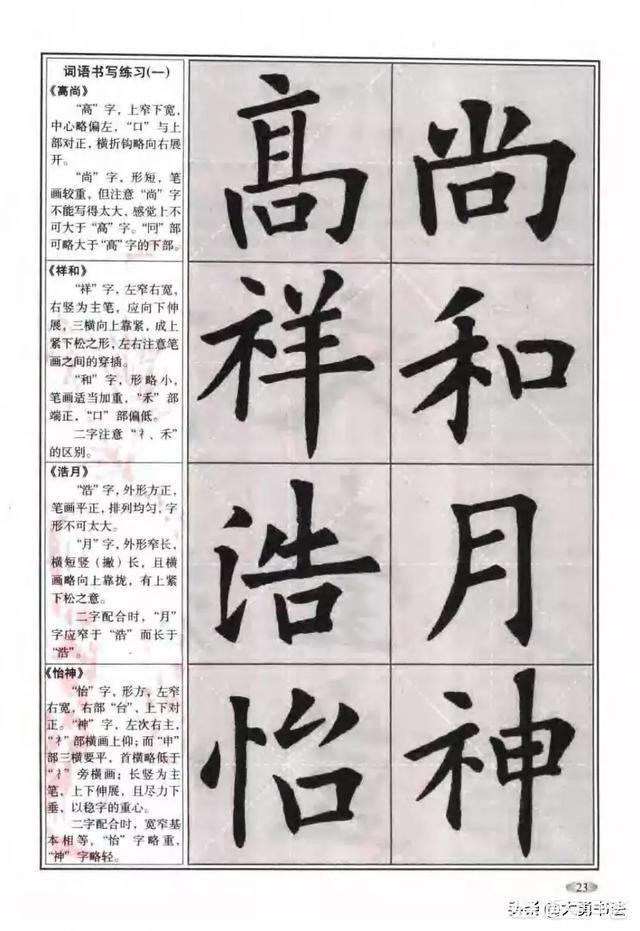 词语书写练习(一)
《高尚》
“高”字，上窄下宽，
中心略偏左，“口”与上
部对正，横折钩略向右展
开。
“尚”字，形短，笔
画较重，但注意“尚”字
不能写得太大，感觉上不
可大于“高”字。“冋”部
可略大于“高”字的下部。
髙尚
《祥和》
“祥”字，左窄右宽，
右竖为主笔，应向下伸
展，三横向上靠紧，成上
紧下松之形，左右注意笔
画之间的穿插。
“和”字，形略小，
笔画适当加重，“禾”部
端正，“口”部偏低。
二字注意“礻、禾”
的区别。
祥和
《浩月》
“浩”字，外形方正，
笔画平正，排列均匀，字
形不可太大。
“月”字，外形窄长，
横短竖（撇）长，且横
画略向上靠拢，有上紧
下松之意。
二字配合时，“月”
字应窄于“浩”而长于
“浩”。
浩月
《怡神》
“怡”字，形方，左窄
右宽，右部“台”、上下对
正。“神”字，左次右主，
“礻”部横画上仰；而“申”
部三横要平，首横略低于
“礻”旁横画；长竖为主
笔，上下伸展，且尽力下
垂，以稳字的重心。
二字配合时，宽窄基
本相等，“怡”字略重，
“神”字略轻。
怡神
23
头条@大勇书法